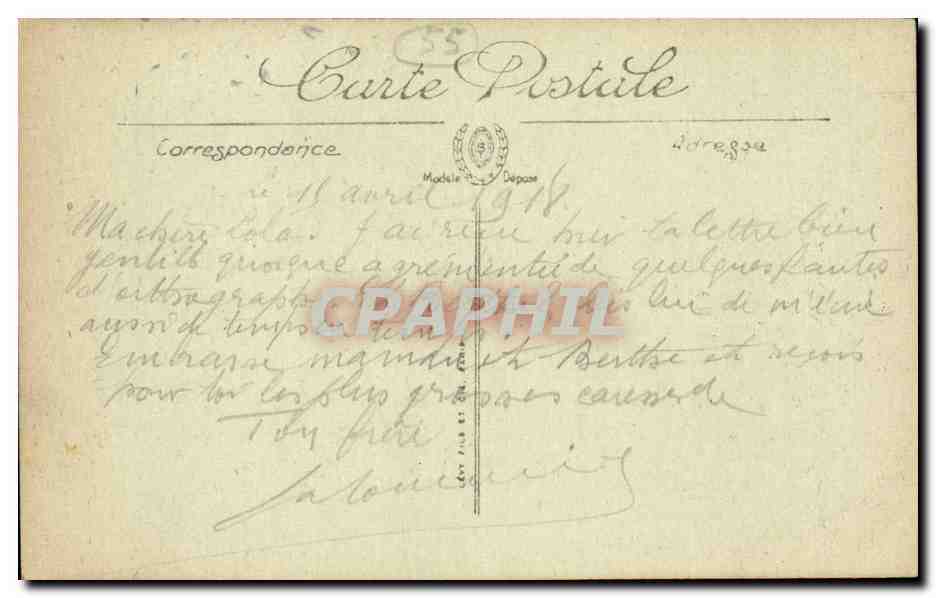 55
Carte Postale
Correspondance
Adresse
Modèle Déposé
le 15 avril 1918.
Ma chère Lola. J'ai reçu hier ta lettre bien
gentille quoique agrémentée de quelques fautes
d'orthographe. lui de m'écrire
aussi de temps en temps.
Embrasse maman et Berthe et reçois
pour toi les plus grosses caresses de
Ton frère
LÉVY FILS ET CIE. PARIS
CPAPHIL